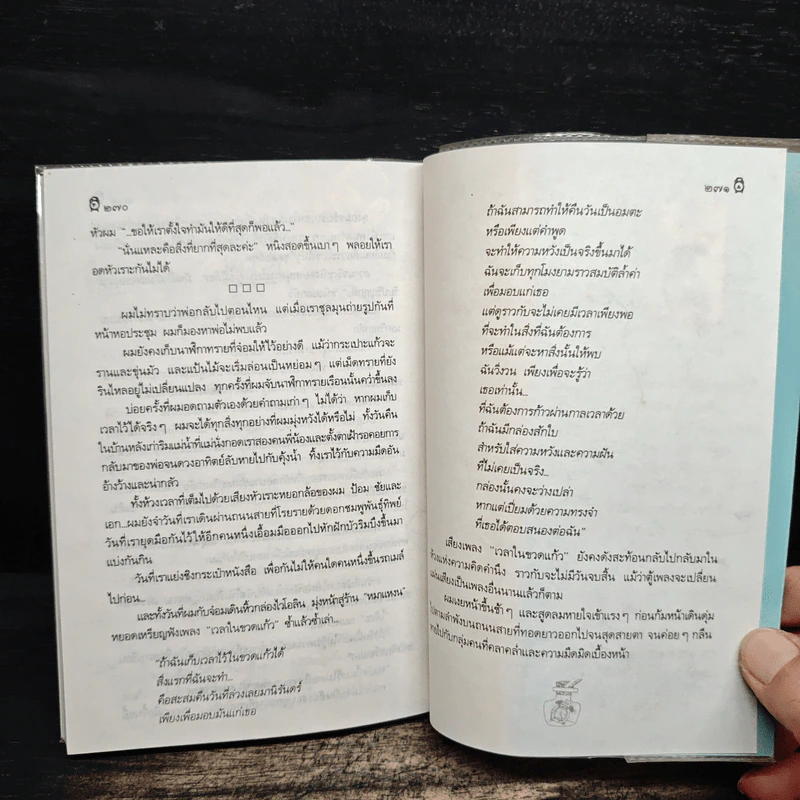 ๒๗๐
หัวผม "...ขอให้เราตั้งใจทำมันให้ดีที่สุดก็พอแล้ว..."
"นั่นแหละคือสิ่งที่ยากที่สุดละค่ะ" หนิงสอดขึ้นเบาๆ พลอยให้เรา
อดหัวเราะกันไม่ได้
ผมไม่ทราบว่าพ่อกลับไปตอนไหน แต่เมื่อเราชุลมุนถ่ายรูปกันที่
หน้าหอประชุม ผมก็มองหาพ่อไม่พบแล้ว
ผมยังคงเก็บนาฬิกาทรายที่จ้อมให้ไว้อย่างดี แม้ว่ากระเปาะแก้วจะ
รานและขุ่นมัว และแป้นไม้จะเริ่มล่อนเป็นหย่อมๆ แต่เม็ดทรายที่ยัง
รินไหลอยู่ไม่เปลี่ยนแปลง ทุกครั้งที่ผมจับนาฬิกาทรายเรือนนั้นคว่ำขึ้นลง
บ่อยครั้งที่ผมอดถามตัวเองด้วยคำถามเก่าๆ ไม่ได้ว่า หากผมเก็บ
เวลาไว้ได้จริงๆ ผมจะได้ทุกสิ่งทุกอย่างที่ผมมุ่งหวังได้หรือไม่ ทั้งวันคืน
ในบ้านหลังเก่าริมแม่น้ำที่แม่นั่งกอดเราสองคนพี่น้องและตั้งตาเฝ้ารอคอยการ
กลับมาของพ่อจนดวงอาทิตย์ลับหายไปกับคุ้งน้ำ ทิ้งเราไว้กับความมืดอัน
อ้างว้างและน่ากลัว
ทั้งห้วงเวลาที่เต็มไปด้วยเสียงหัวเราะหยอกล้อของผม ป้อม ชัยและ
เอก...ผมยังจำวันที่เราเดินผ่านถนนสายที่โรยรายด้วยดอกชมพูพันธุ์ทิพย์
วันที่เรายุดมือกันไว้ให้อีกคนหนึ่งเอื้อมมือออกไปหักฝักบัวริมบึงขึ้นมา
แบ่งกันกิน
วันที่เราแย่งชิงกระเป๋าหนังสือ เพื่อกันไม่ให้คนใดคนหนึ่งขึ้นรถเมล์
ไปก่อน...
และทั้งวันที่ผมกับจ้อมเดินหิ้วกล่องไวโอลิน มุ่งหน้าสู่ร้าน "หมูแหงน"
หยอดเหรียญฟังเพลง "เวลาในขวดแก้ว" ซ้ำแล้วซ้ำเล่า...
"ถ้าฉันเก็บเวลาไว้ในขวดแก้วได้
สิ่งแรกที่ฉันจะทำ...
คือสะสมคืนวันที่ล่วงเลยมานิรันดร์
เพียงเพื่อมอบมันแก่เธอ
๒๗๑
ถ้าฉันสามารถทำให้คืนวันเป็นอมตะ
หรือเพียงแต่คำพูด
จะทำให้ความหวังเป็นจริงขึ้นมาได้
ฉันจะเก็บทุกโมงยามราวสมบัติล้ำค่า
เพื่อมอบแก่เธอ
แต่ดูราวกับจะไม่เคยมีเวลาเพียงพอ
ที่จะทำในสิ่งที่ฉันต้องการ
หรือแม้แต่จะหาสิ่งนั้นให้พบ
ฉันวิ่งวน เพียงเพื่อจะรู้ว่า
เธอเท่านั้น...
ที่ฉันต้องการก้าวผ่านกาลเวลาด้วย
ถ้าฉันมีกล่องสักใบ
สำหรับใส่ความหวังและความฝัน
ที่ไม่เคยเป็นจริง...
กล่องนั้นคงจะว่างเปล่า
หากแต่เปี่ยมด้วยความทรงจำ
ที่เธอได้ตอบสนองต่อฉัน"
เสียงเพลง "เวลาในขวดแก้ว" ยังคงดังสะท้อนกลับไปกลับมาใน
ห้วงแห่งความคิดคำนึง ราวกับจะไม่มีวันจบสิ้น แม้ว่าตู้เพลงจะเปลี่ยน
แผ่นเสียงเป็นเพลงอื่นนานแล้วก็ตาม
ผมเงยหน้าขึ้นช้าๆ และสูดลมหายใจเข้าแรงๆ ก่อนก้มหน้าเดินดุ่ม
ไปตามลำพังบนถนนสายที่ทอดยาวออกไปจนสุดสายตา จนค่อยๆ กลืน
หายไปกับกลุ่มคนที่คลาคล่ำและความมืดมิดเบื้องหน้า